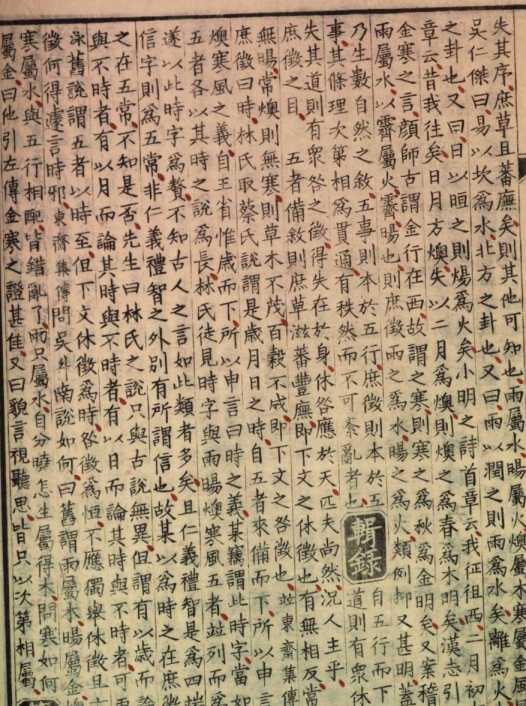 失其序庶草且蕃廡矣則其他可知也雨屬水暘屬火燠屬木寒屬金風
吳仁傑曰易以坎為水北方之卦也又曰雨以潤之則雨為水矣離為火
之卦也又曰日以晅之則煬為火矣小明之詩首章云我征徂西二月初
章云昔我往矣日月方燠夫以二月為燠則燠之為春為木明矣漢志引
金寒之言顏師古謂金行在西故謂之寒則寒之為秋為金明矣又案稽
雨屬水以霽屬火霽暘也則庶徵雨之為水暘之為火類例抑又甚明蓋
乃生數自然之敘五事則本於五行庶徵則本於五
事其條理次第相為貫通有秩然而不可紊亂者也
輯錄
自五行而下
道則有眾休
失其道則有眾咎之徵得失在於身休咎應於天匹夫尚然況人主乎
庶徵之目 五者備敘則庶草滋蕃豐廡即下文之休徵也有無相反常
無暘常燠則無寒則草木不茂百穀不成即下文之咎徵也 並東齋集傳
庶徵曰時林氏取蔡氏說謂是歲月日之時自五者來備而下所以申言
燠寒風之義自王省惟歲而下所以申言曰時之義某竊謂此時字當如
五者各以其時之說為長林氏徒見時字與雨暘燠寒風五者並列而為
遂以此時字為贅不知古人之言如此類者多矣且仁義禮智是為四端
信字則為五常非仁義禮智之外別有所謂信也故某以為時之在庶徵
之在五常不知是否先生曰林氏之說只與古說無異但謂有以歲而論
與不時者有以月而論其時與不時者有以日而論其時與不時者可更
詠舊說謂五者以時至但下文休徵為時咎徵為恒不應獨舉休徵且
徵何得遽言時邪 東齋集傳 問吳斗南說如何曰舊謂雨屬木暘屬金
寒屬水與五行相配皆錯亂了雨只屬水自分曉怎生屬得木問寒如何
屬金曰他引左傳金寒之證甚佳又曰貌言視聽思皆只以次第相屬